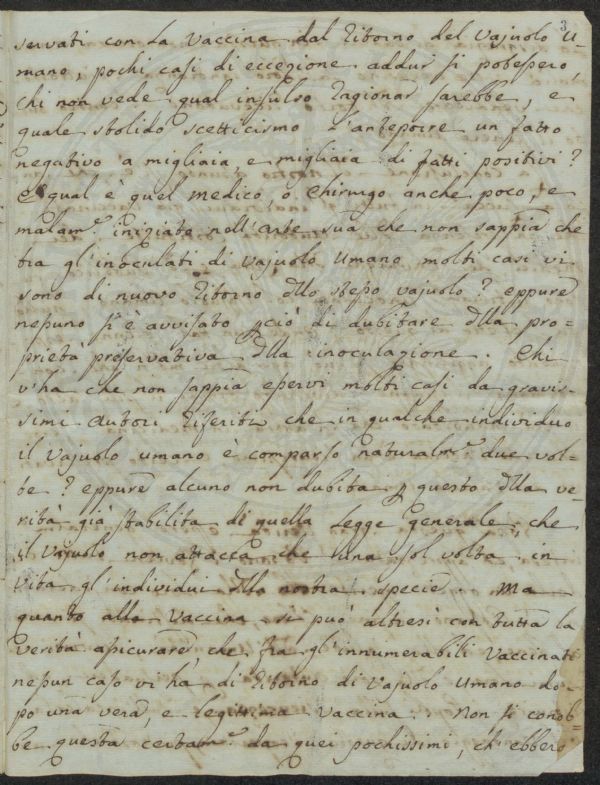 3
servati con la Vaccina dal ritorno del Vajuolo U-
mano, pochi casi di eccezione addur si potessero,
chi non vede qual insulso ragionar sarebbe, e
quale stolido scetticismo l'anteporre un fatto
negativo a migliaia, e migliaia di fatti positivi?
E qual è quel medico, o Chirurgo anche poco, e
malam.e iniziato nell'arte sua che non sappia che
tra gl'inoculati di Vajuolo Umano molti casi vi
sono di nuovo ritorno dllo stesso vajuolo? eppure
nessuno si è avvisato pciò di dubitare dlla pro=
prietà preservativa dlla inoculazione. Chi
v'ha che non sappia esservi molti casi da gravis-
simi Autori riferiti che in qualche individuo
il Vajuolo umano è comparso naturalm.e due vol-
te? eppure alcuno non dubita p questo dlla ve-
rità già stabilita di quella Legge generale, che
il Vajuolo non attacca che una sol volta in
vita gl'individui dlla nostra specie. Ma
quanto alla Vaccina si può altresì con tutta la
verità assicurare, che fra gl'innumerabili Vaccinati
nessun caso vi ha di ritorno di Vajuolo Umano do-
po una vera, e legittima Vaccina. Non si conob-
be questa certam.e da quei pochissimi, ch'ebbero